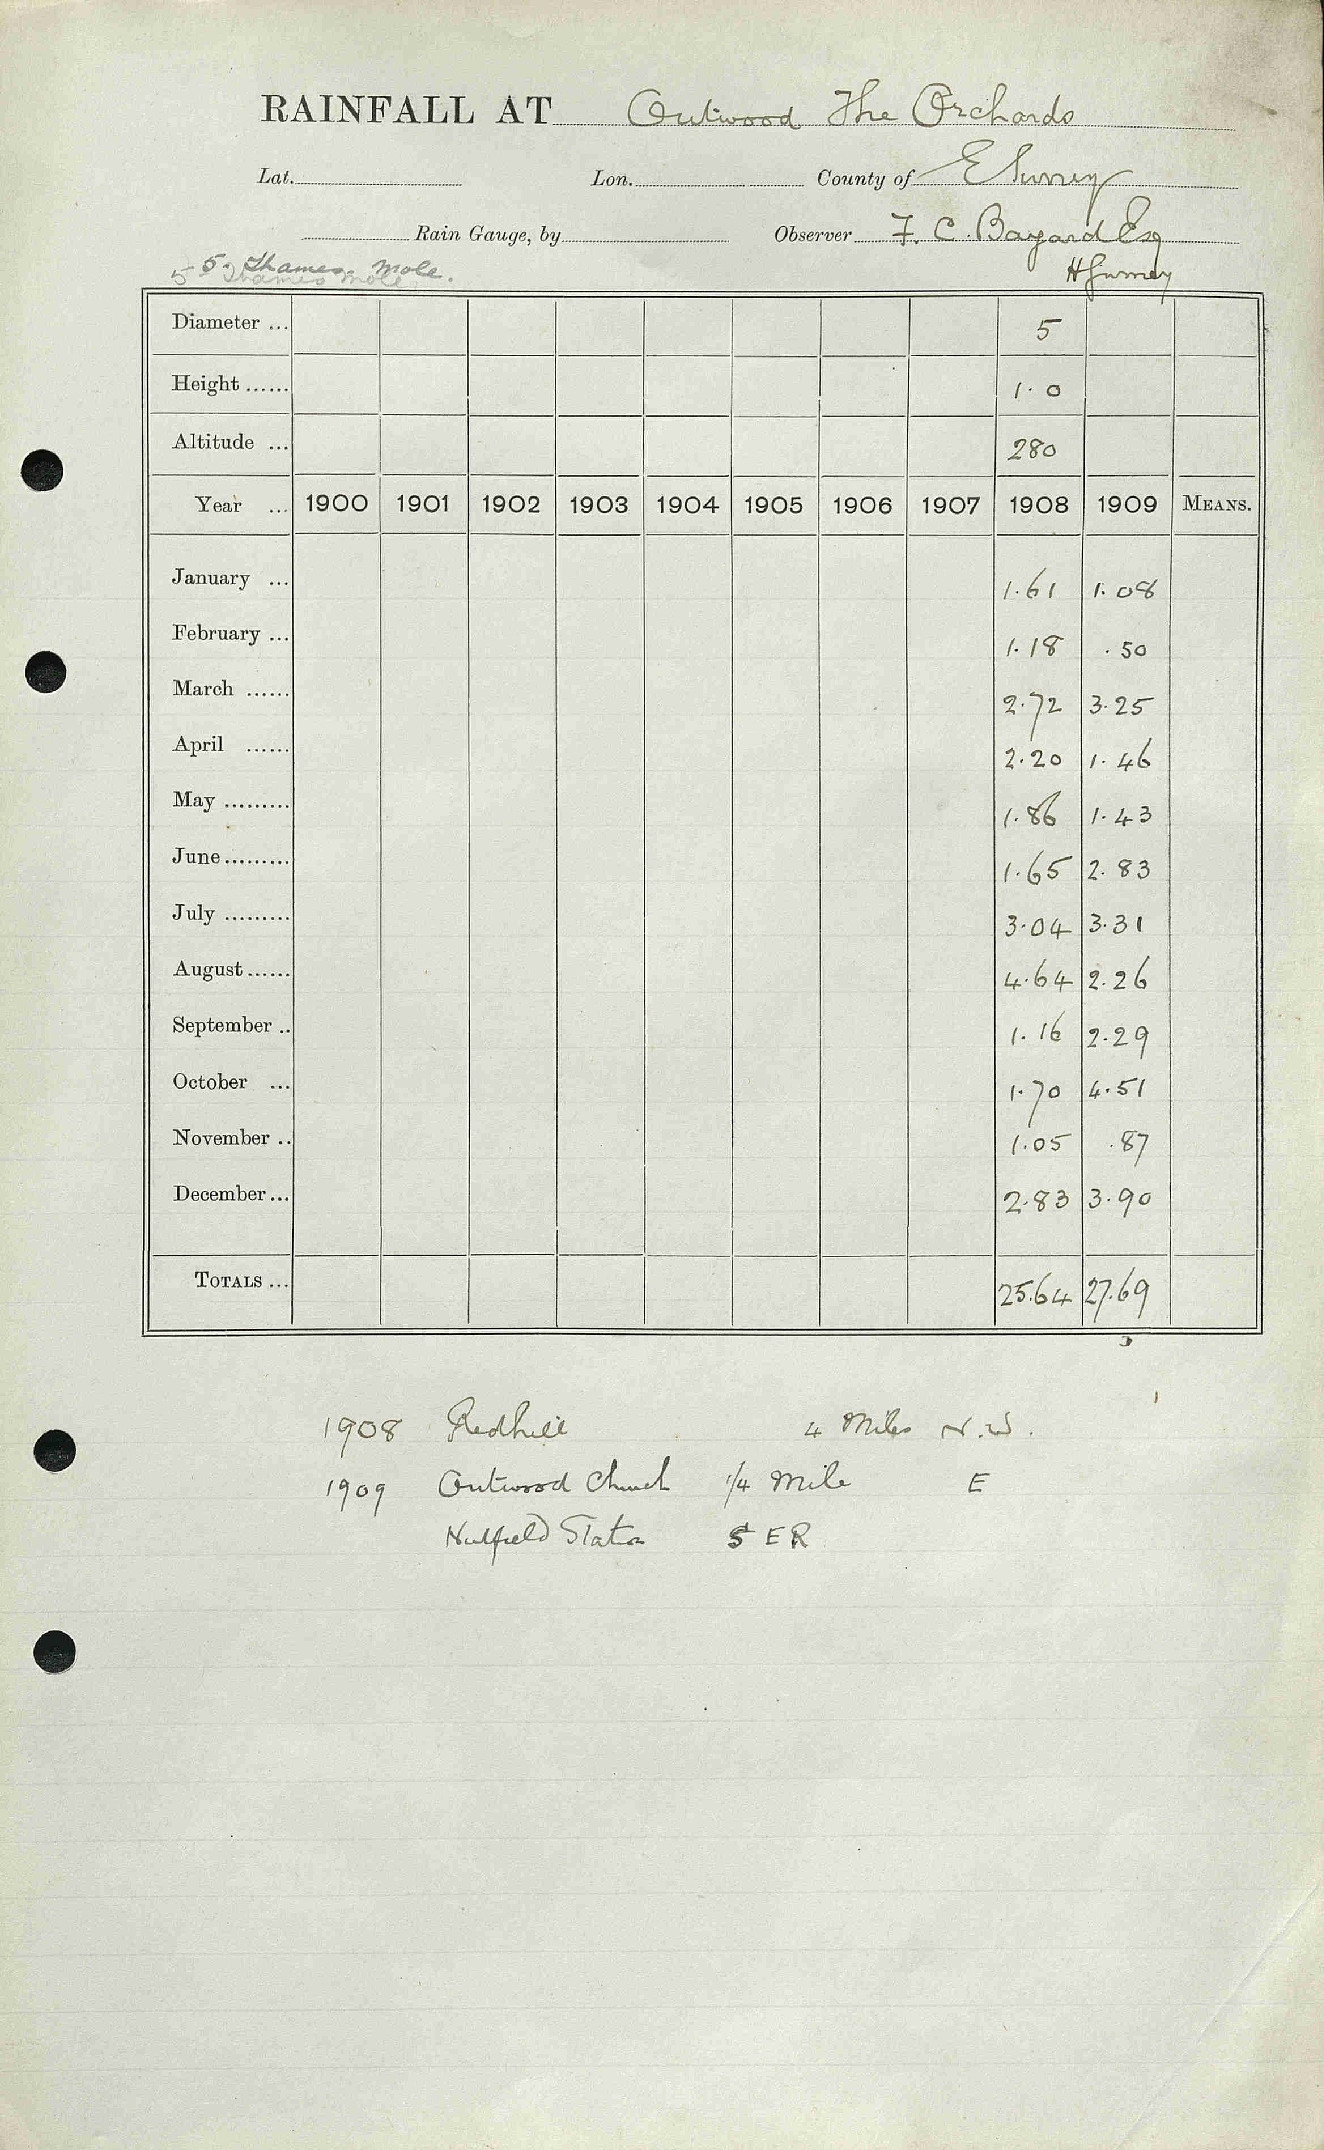 RAINFALL AT Outwood The Orchards
Lat. Lon. County of E Surrey
Rain Gauge, by Observer F. C. Bayard Esq
5. Thames Mole.
Diameter ... 5
Height ...... 1.0
Altitude ... 280
Year ... 1900 1901 1902 1903 1904 1905 1906 1907 1908 1909 MEANS.
January ... 1.61 1.08
February ... 1.18 .50
March ...... 2.72 3.25
April ...... 2.20 1.46
May ......... 1.86 1.43
June ......... 1.65 2.83
July ......... 3.04 3.31
August ...... 4.64 2.26
September .. 1.16 2.29
October ... 1.70 4.51
November .. 1.05 .87
December ... 2.83 3.90
TOTALS ... 25.64 27.69
1908 Redhill 4 Miles N.W.
1909 Outwood Church 1/4 Mile E
Nutfield Station S E R